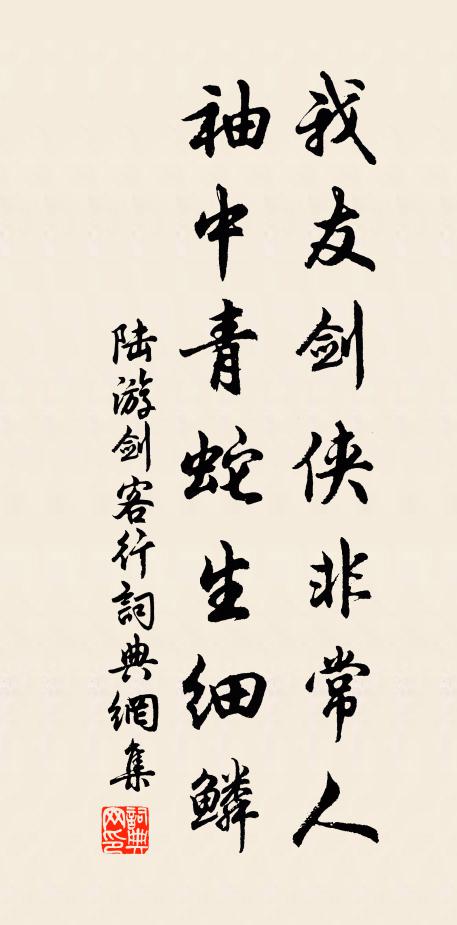 我友剑侠非常人
袖中青蛇生细鳞
陆游剑客行詞典網集
詞典网印